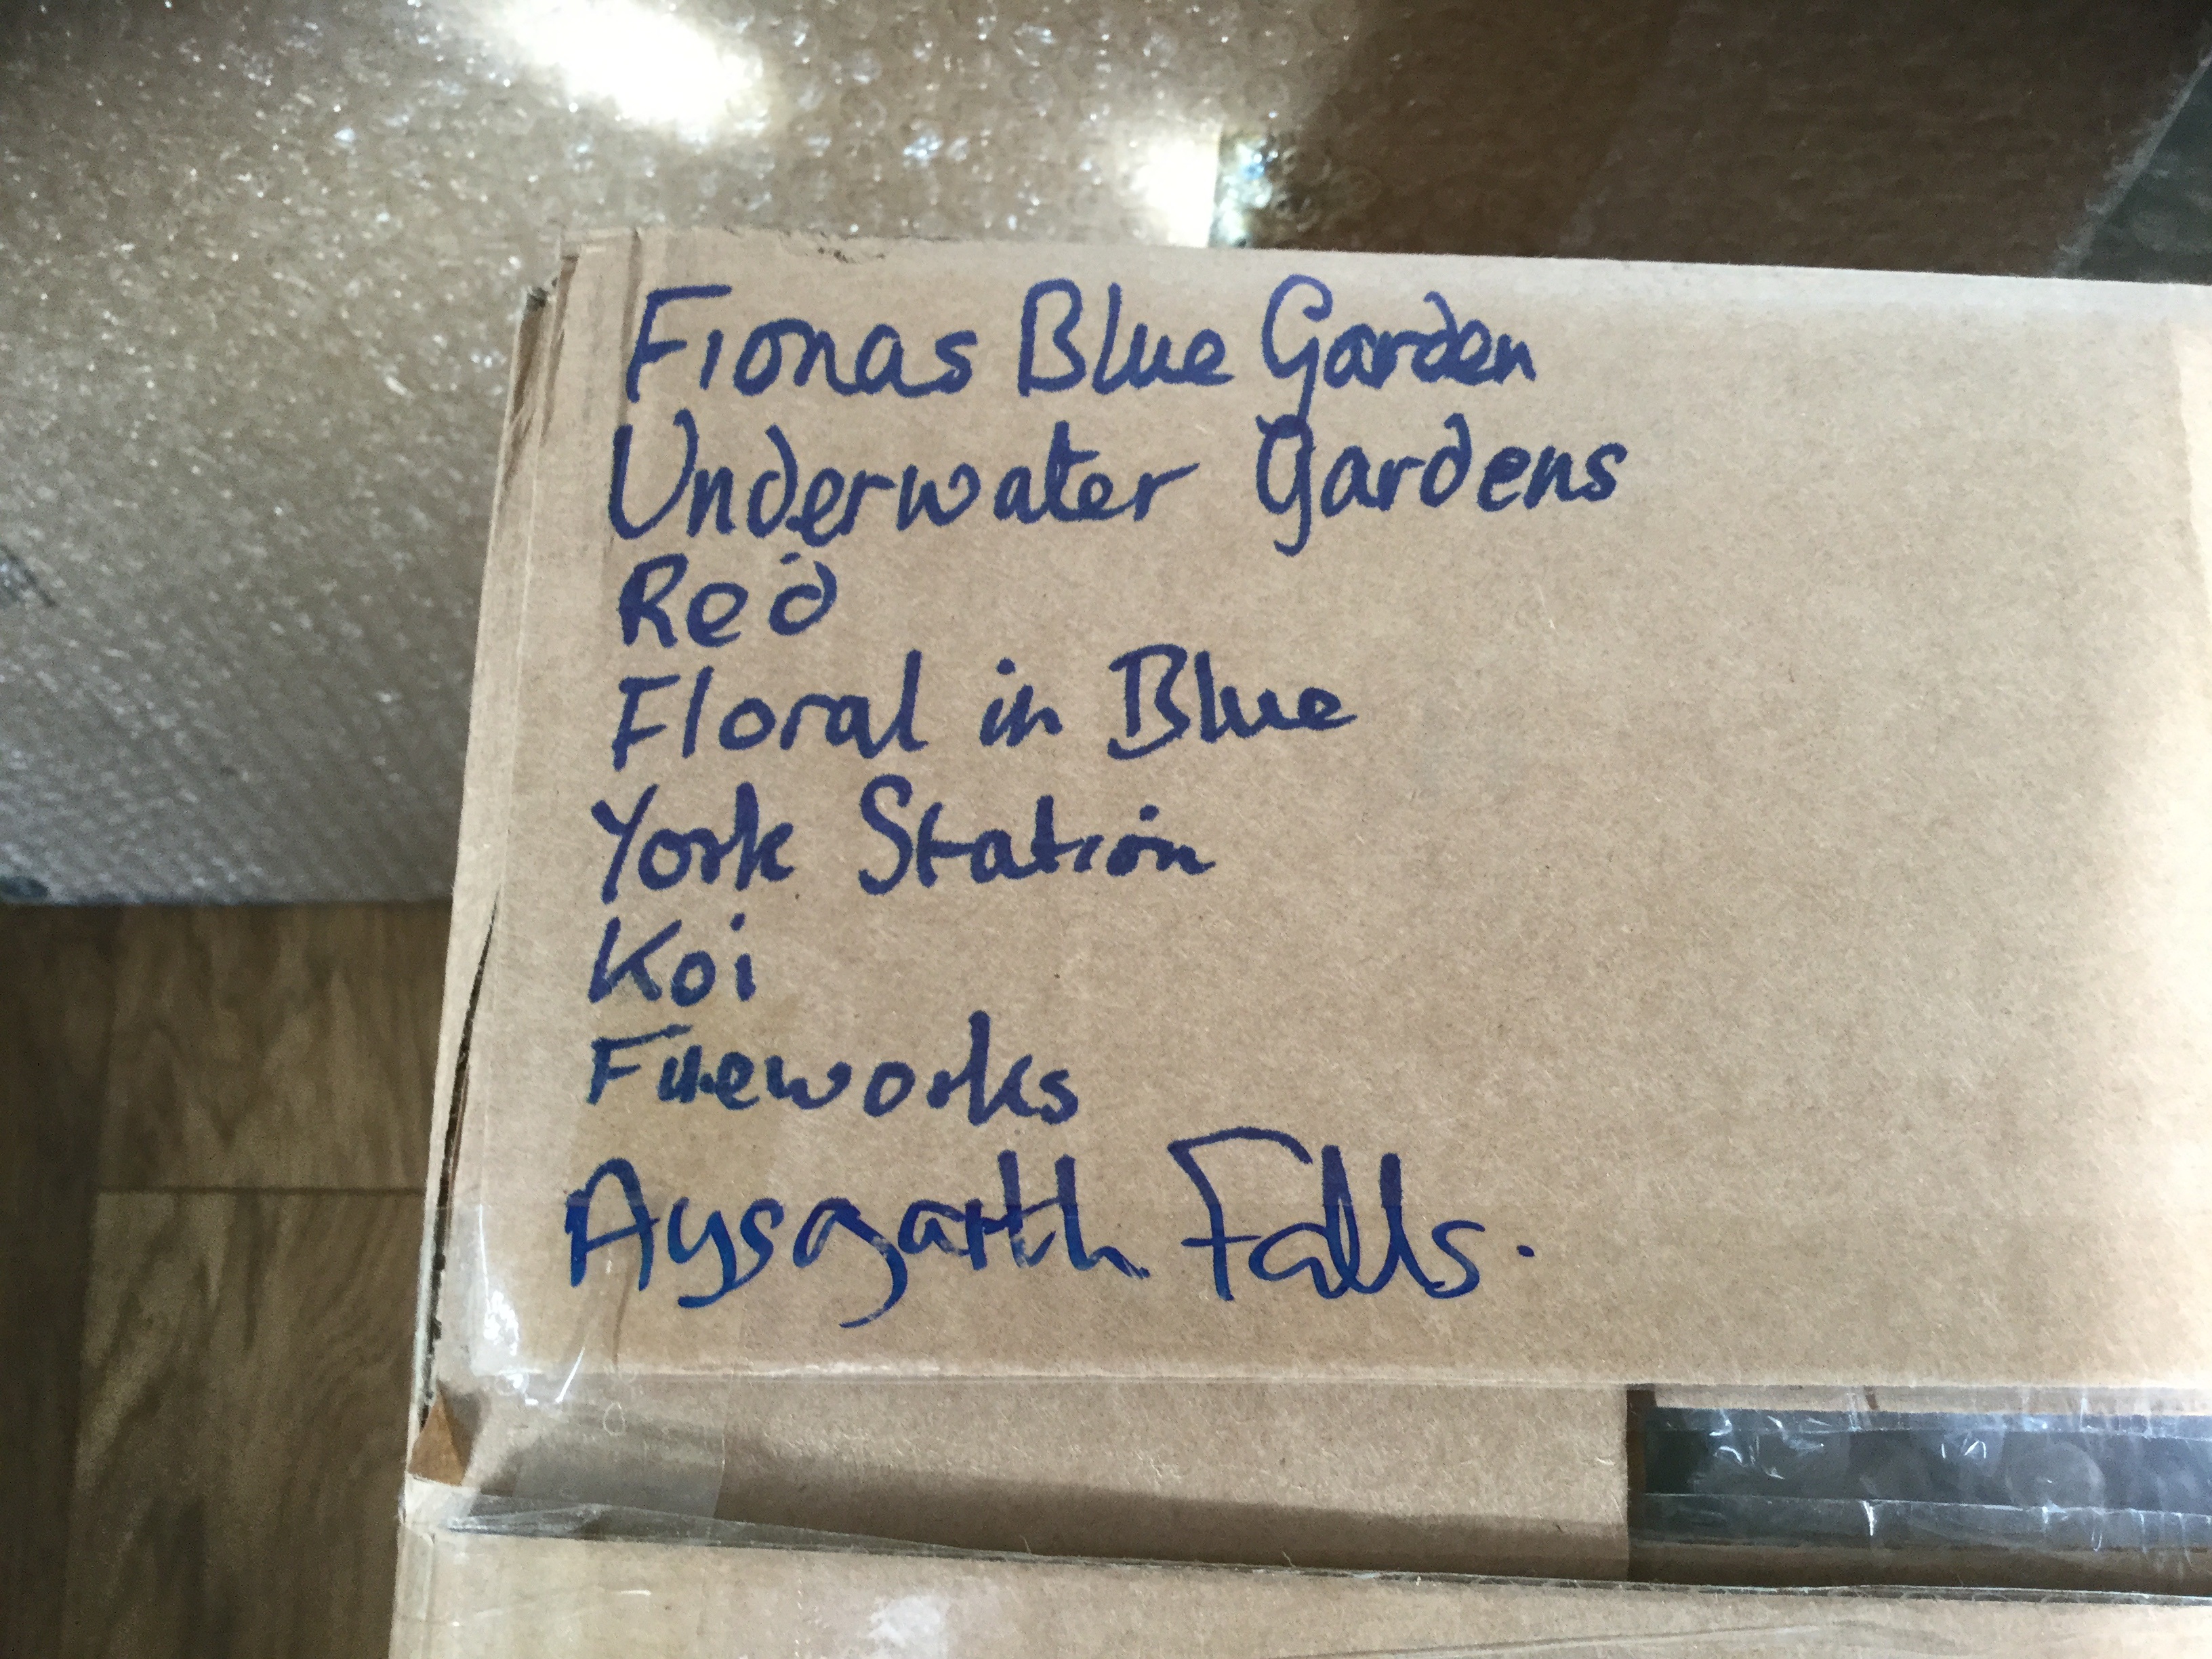 Fionas Blue Garden
Underwater Gardens
Red
Floral in Blue
York Station
Koi
Fireworks
Aysgarth Falls.